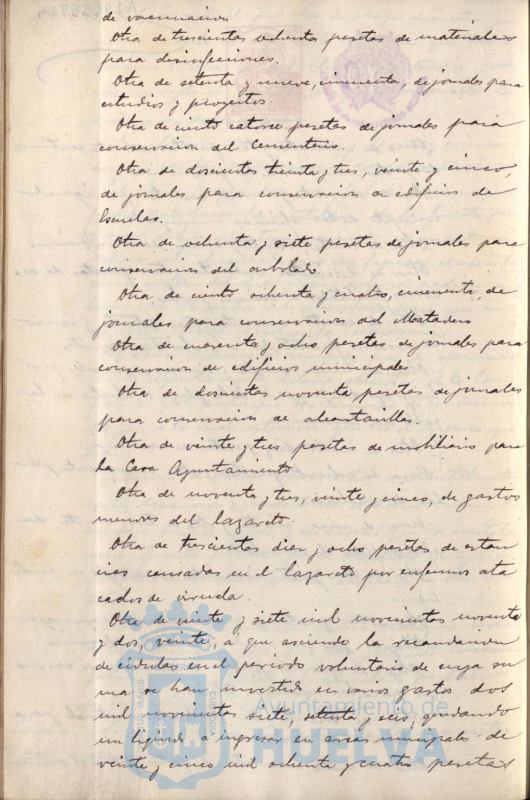 de vacunacion
Otra de trescientas ochenta pesetas de materiales
para desinfecciones.
Otra de setenta y nueve, cincuenta, de jornales para
estudios y proyectos.
Otra de ciento catorce pesetas de jornales para
conservacion del Cementerio.
Otra de doscientas treinta y tres, veinte y cinco,
de jornales para conservacion de edificios de
Escuelas.
Otra de ochenta y siete pesetas de jornales para
conservacion del arbolado.
Otra, de ciento ochenta y cuatro, cincuenta, de
jornales para conservacion del Matadero
Otra de cuarenta y ocho pesetas de jornales para
conservacion de edificios municipales
Otra de doscientas noventa pesetas de jornales
para conservacion de alcantarillas.
Otra de veinte y tres pesetas de mobiliario para
la Casa Ayuntamiento.
Otra de noventa y tres, veinte y cinco, de gastos
menores del lazareto.
Otra de trescientas diez y ocho pesetas de estan
cias causadas en el lazareto por enfermos ata
cados de viruela.
Otra de veinte y siete mil novecientas noventa
y dos, veinte, a que asciende la recaudacion
de cédulas en el periodo voluntario de cuya su
ma se han invertido en varios gastos dos
mil novecientas siete, setenta y seis, quedando
un liquido a ingresar en arcas municipales de
veinte y cinco mil ochenta y cuatro pesetas
Ayuntamiento de
HUELVA